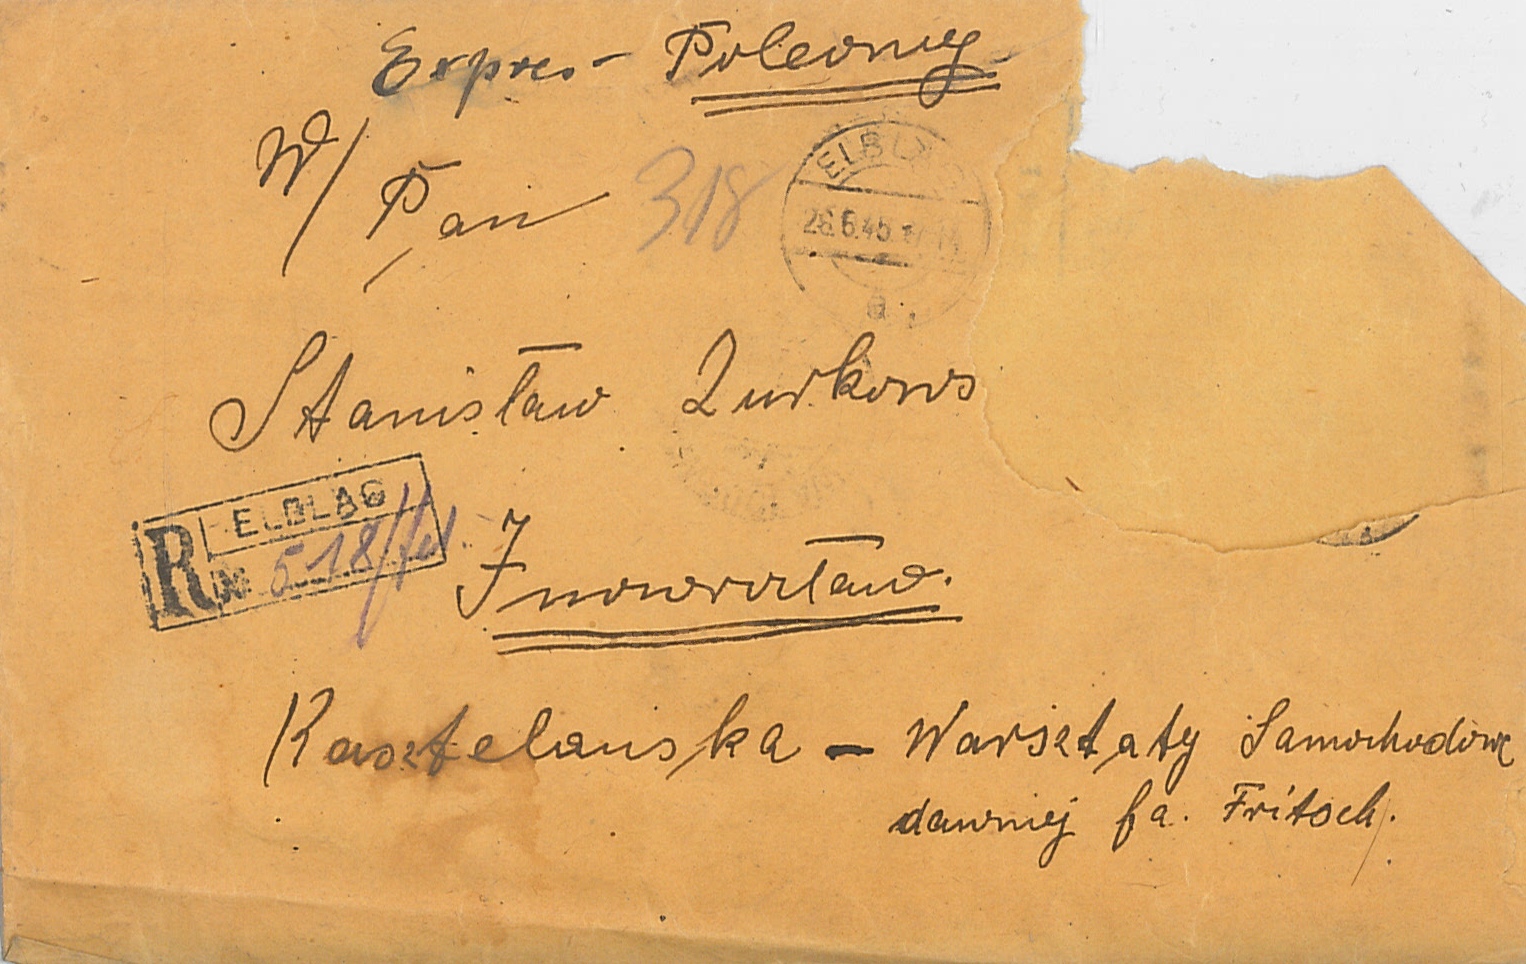 Expres – Poleconej
W/ Pan 318
ELBLĄG
26.6.45
a
Stanisław Żurkows
R ELBLĄG
№ 518
Inowrocław.
Kasztelańska – Warsztaty Samochodowe
dawniej fa. Fritsch.